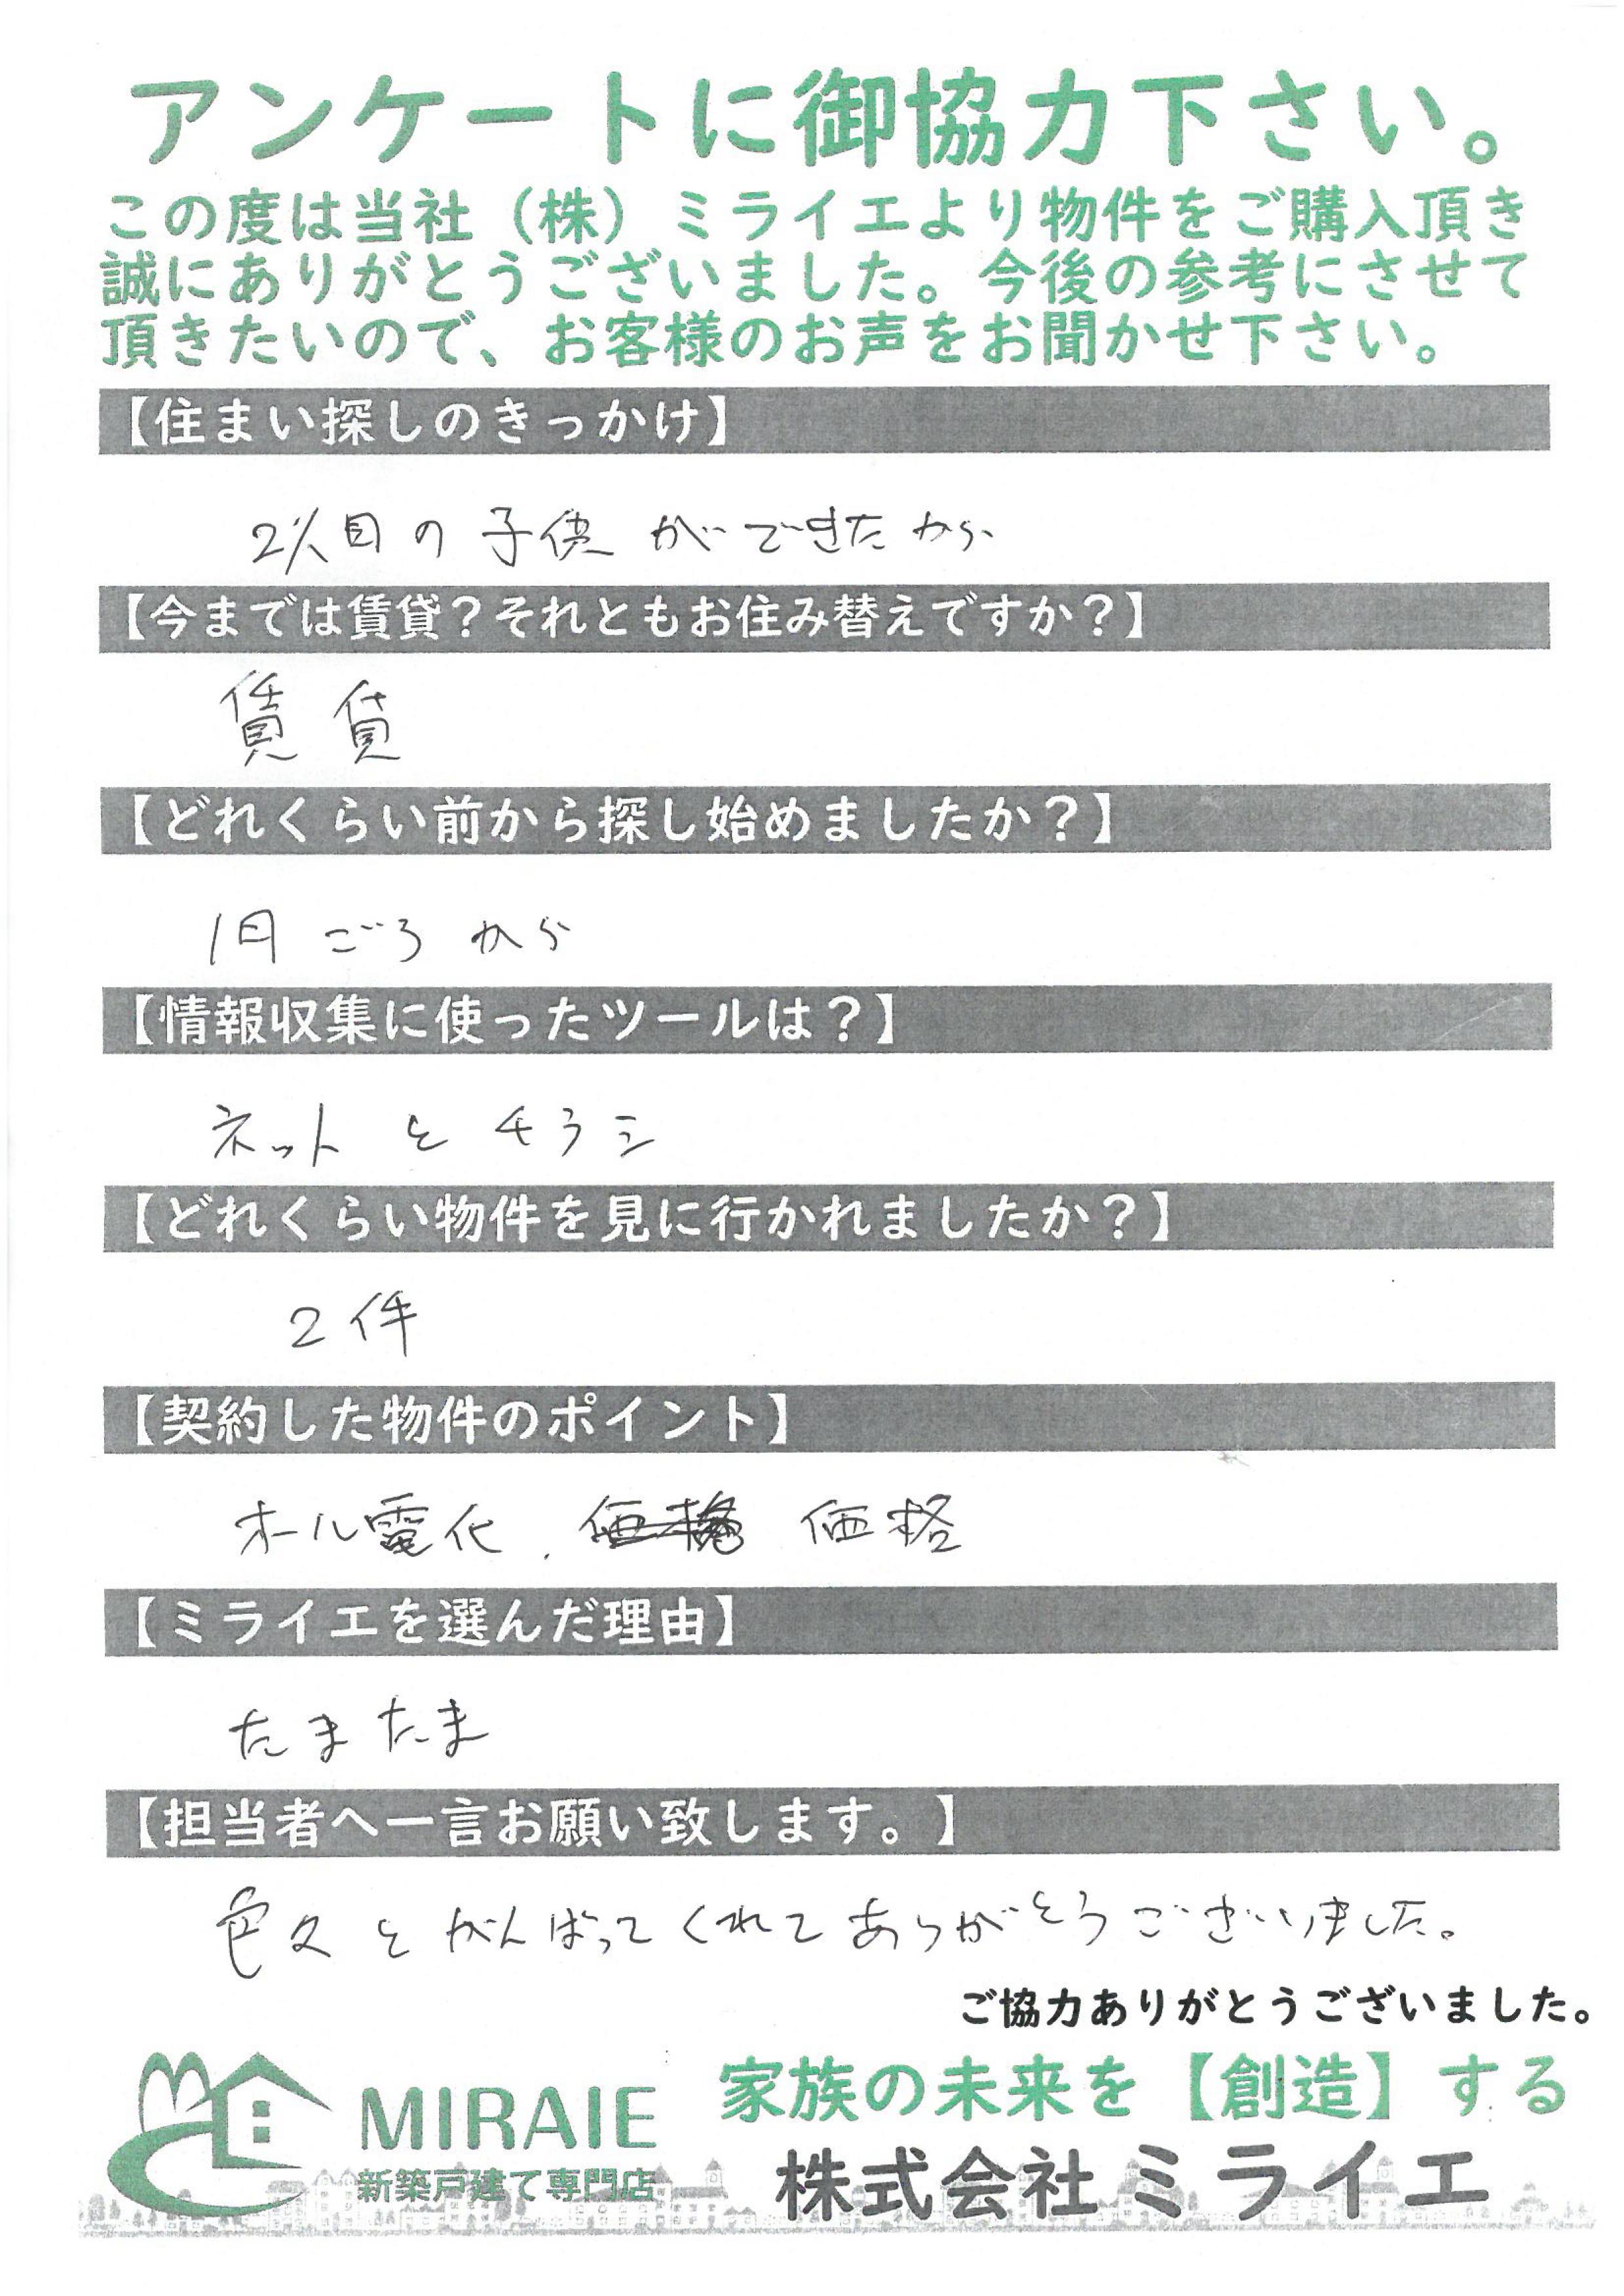 アンケートに御協力下さい。
この度は当社（株）ミライエより物件をご購入頂き
誠にありがとうございました。今後の参考にさせて
頂きたいので、お客様のお声をお聞かせ下さい。
【住まい探しのきっかけ】
2人目の子供ができたから
【今までは賃貸？それともお住み替えですか？】
賃貸
【どれくらい前から探し始めましたか？】
1月ごろから
【情報収集に使ったツールは？】
ネットとチラシ
【どれくらい物件を見に行かれましたか？】
2件
【契約した物件のポイント】
オール電化、価格
【ミライエを選んだ理由】
たまたま
【担当者へ一言お願い致します。】
色々とがんばってくれてありがとうございました。
ご協力ありがとうございました。
MIRAIE
新築戸建て専門店
家族の未来を【創造】する
株式会社ミライエ